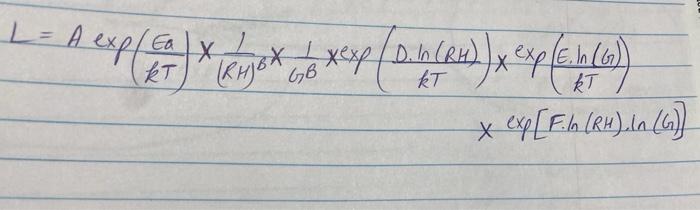 L = A exp(Ea/kT) × 1/(RH)^B × 1/G^B × exp(D.ln(RH)/kT) × exp(E.ln(G)/kT)
× exp[F.ln(RH).ln(G)]